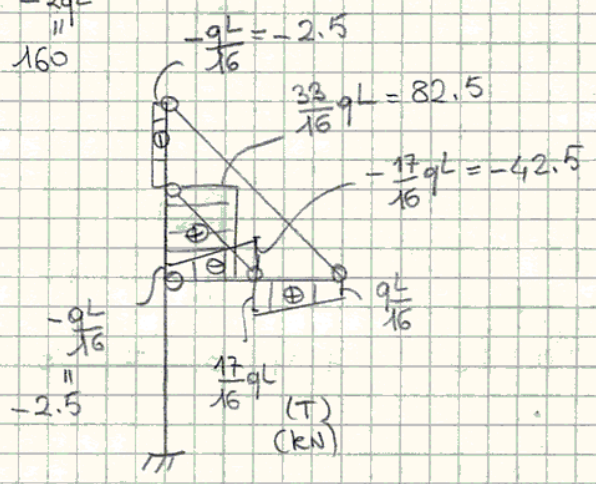 -2qL
=
160
-qL/16 = -2.5
33/16 qL = 82.5
-17/16 qL = -42.5
⊖
⊕
⊖
⊕
qL/16
-qL/16
=
-2.5
17/16 qL
(T)
(kN)